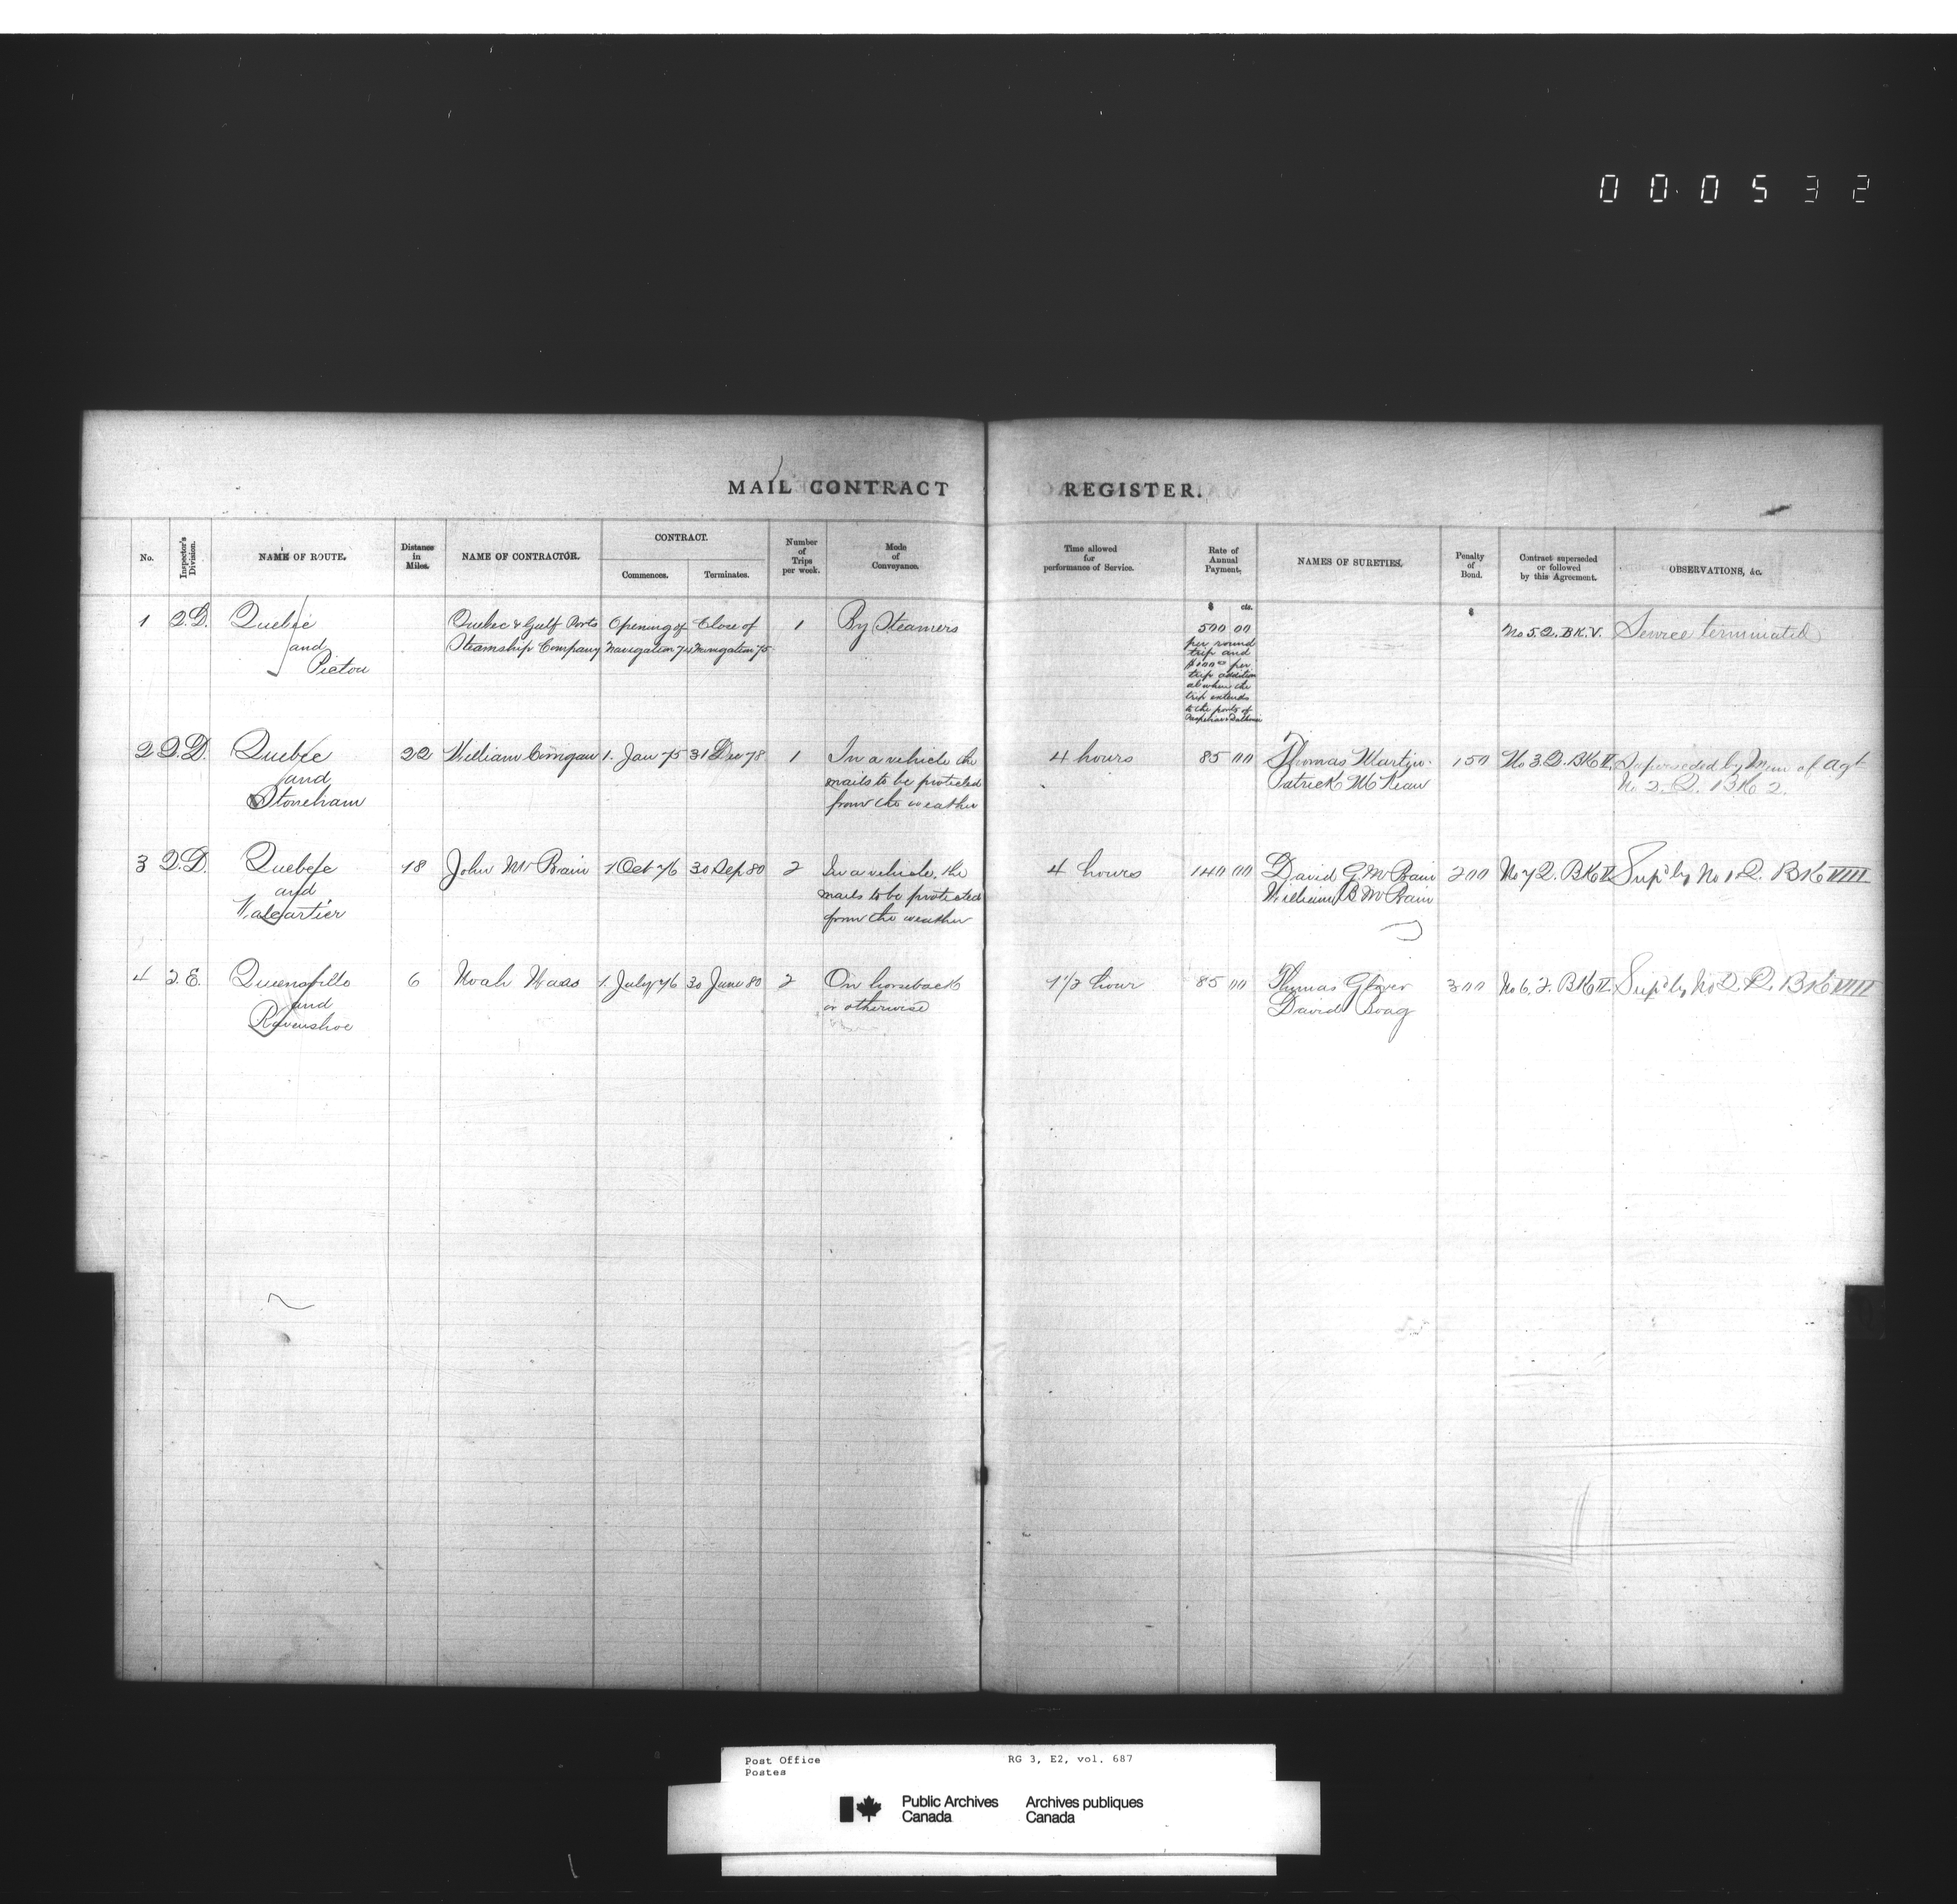 000532
MAIL CONTRACT REGISTER.
No. Inspector's Division. NAME OF ROUTE. Distance in Miles. NAME OF CONTRACTOR. CONTRACT. Commences. Terminates. Number of Trips per week. Mode of Conveyance. Time allowed for performance of Service. Rate of Annual Payment. NAMES OF SURETIES. Penalty of Bond. Contract superseded or followed by this Agreement. OBSERVATIONS, &c.
$ cts. $
1 Q.D. Quebec Quebec & Gulf Ports Opening of Close of 1 By Steamers 500 00 No 5. Q. BK. V. Service terminated
and Steamship Company Navigation 74 Navigation 75 per round
Pictou trip and
per
trip addition
al when the
trip extends
to the ports of
2 Q.D. Quebec 22 William 1. Jan 75 31 Dec 78 1 In a vehicle the 4 hours 85 00 Thomas 150 No 3. Q. BK II. Superseded by Mem of Agt
and mails to be protected Patrick McKean No 2. Q. BK 2.
Stoneham from the weather
3 Q.D. Quebec 18 John McBain 1 Oct 76 30 Sep 80 2 In a vehicle, the 4 hours 140 00 David G. McBain 200 No 7 Q. BK II Sup'd by No 1 Q. BK VIII
and mails to be protected William B. McBain
Valcartier from the weather
4 Q.E. Queensville 6 Noah 1 July 76 30 June 80 2 On horseback 1 1/2 hour 85 00 Thomas Glover 300 No 6. Q. BK II. Sup'd by No 2. Q. BK VIII
and or otherwise David Boag
Ravenshoe
Post Office RG 3, E2, vol. 687
Postes
Public Archives Archives publiques
Canada Canada